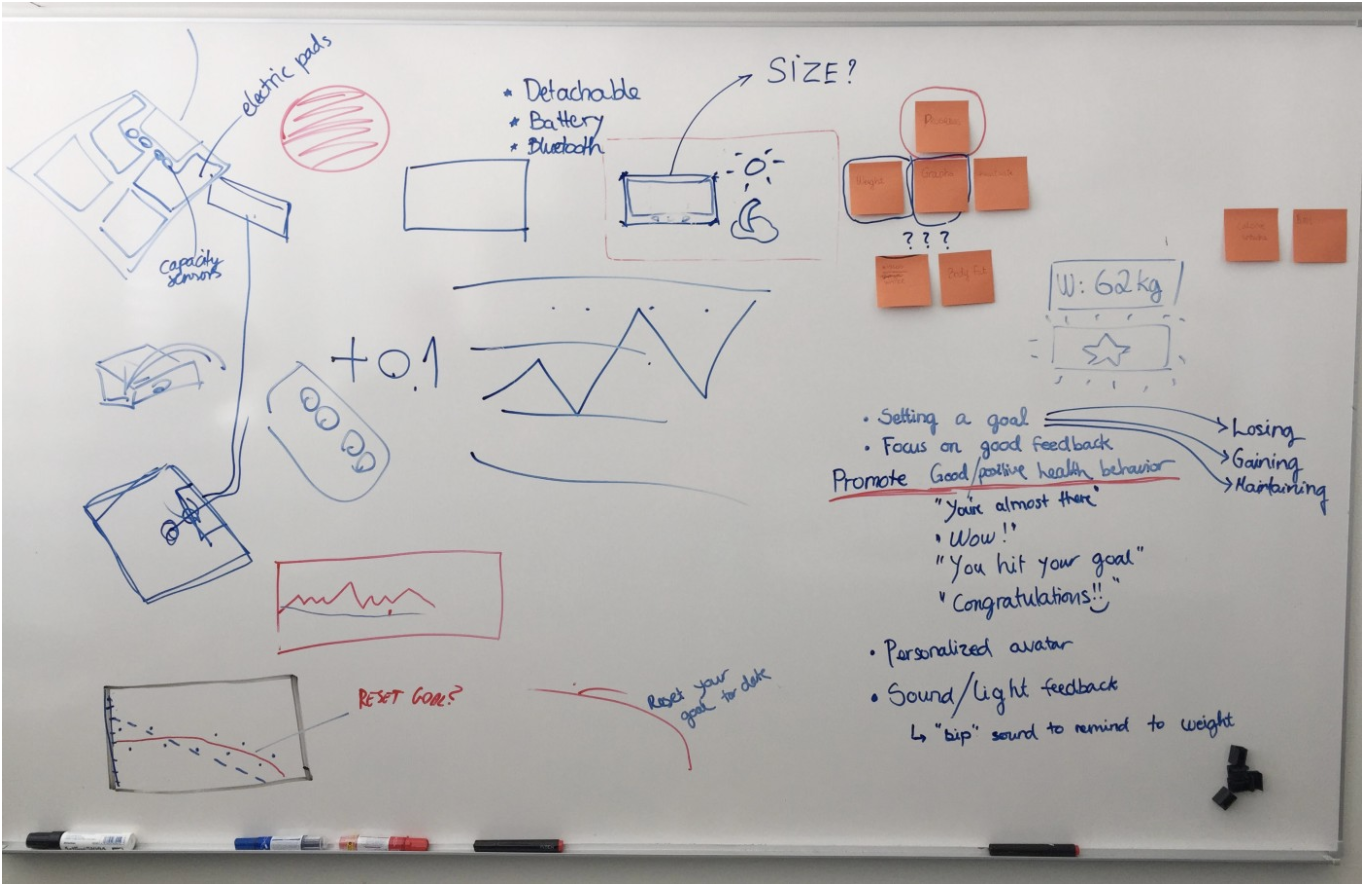 electric pads
capacity
sensors
* Detachable
* Battery
* Bluetooth
SIZE?
Weight
Graphs
? ? ?
Body fat
W: 62kg
+0.1
• Setting a goal
Losing
Gaining
Maintaining
• Focus on good feedback
Promote Good/positive health behavior
"You're almost there"
• Wow!"
"You hit your goal"
"Congratulations!!"
• Personalized avatar
• Sound/Light feedback
↳ "bip" sound to remind to weight
RESET GOAL?
Reset your
goal to date